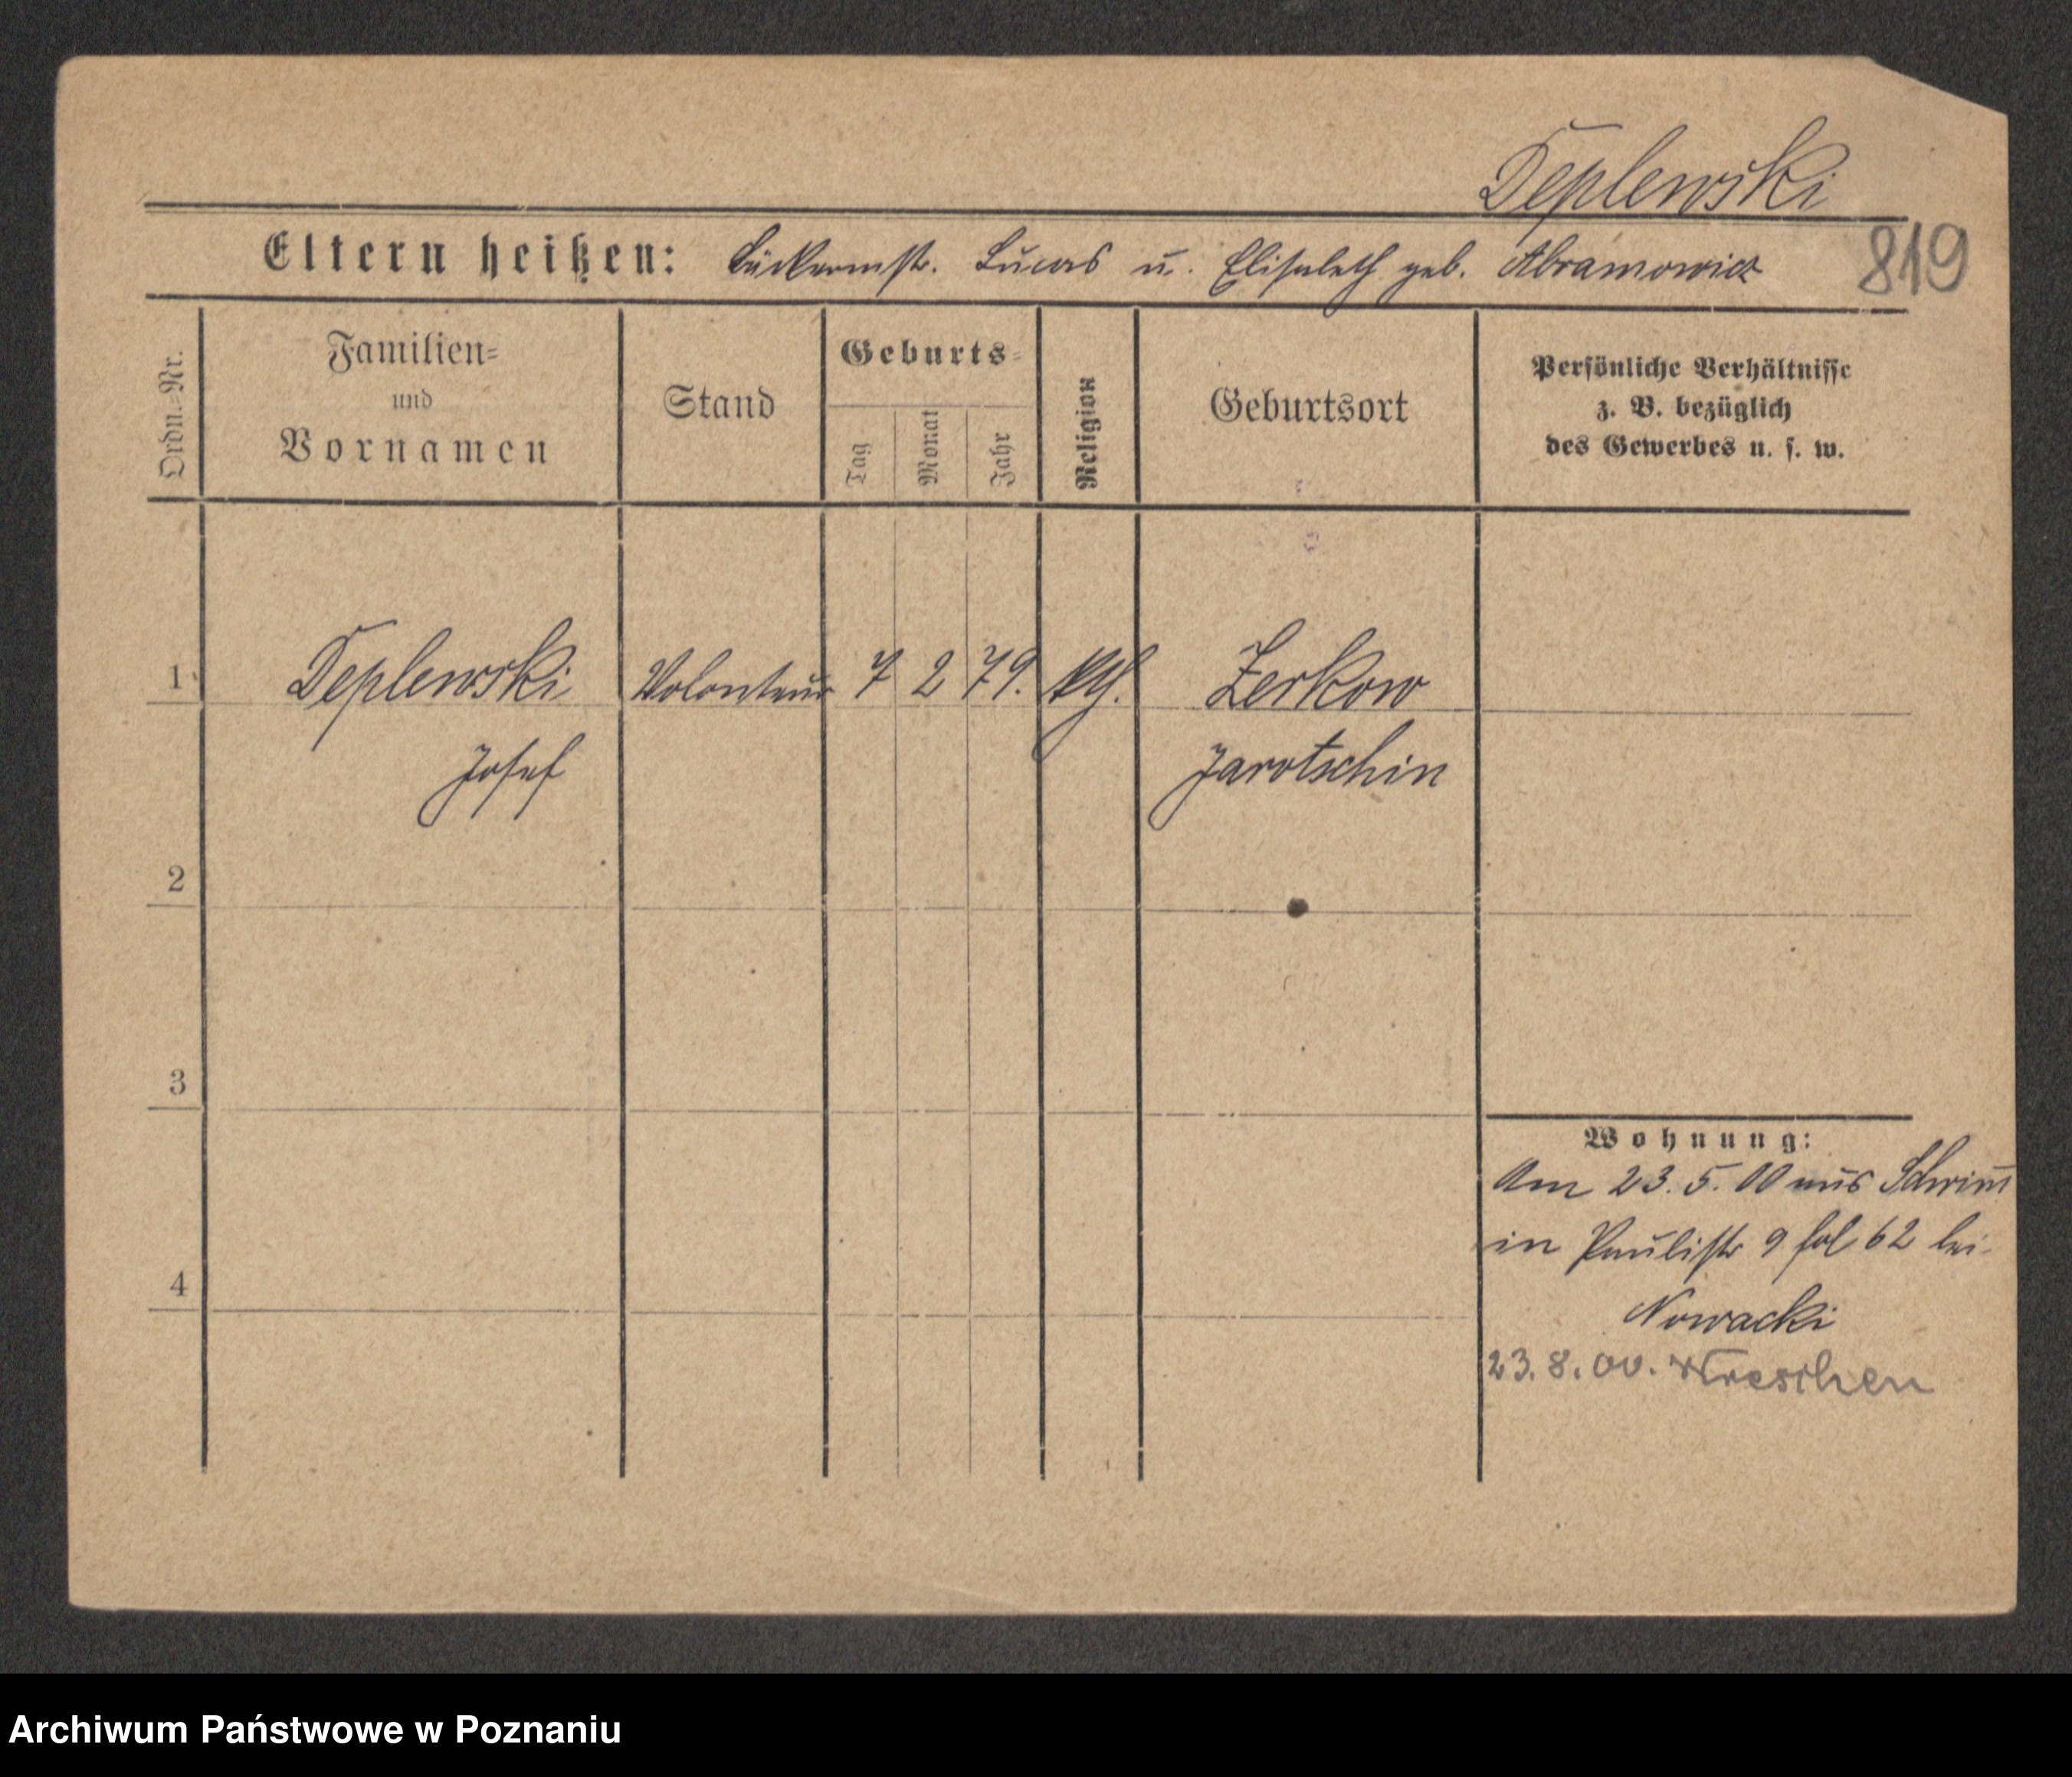 Deplewski
Eltern heißen: Bäckermstr. Lucas u. Elisabeth geb. Abramowicz 819
Ordn.-Nr.
Familien-
und
Vornamen
Stand
Geburts-
Tag Monat Jahr
Religion
Geburtsort
Persönliche Verhältnisse
z. B. bezüglich
des Gewerbes u. s. w.
1 Deplewski Volonteur 7 2 79. kth. Zerkow
Josef Jarotschin
2
3
Wohnung:
Am 23. 5. 00 aus
in Paulistr 9 fol 62 bei
4
Nowacki
23. 8. 00. Wreschen
Archiwum Państwowe w Poznaniu